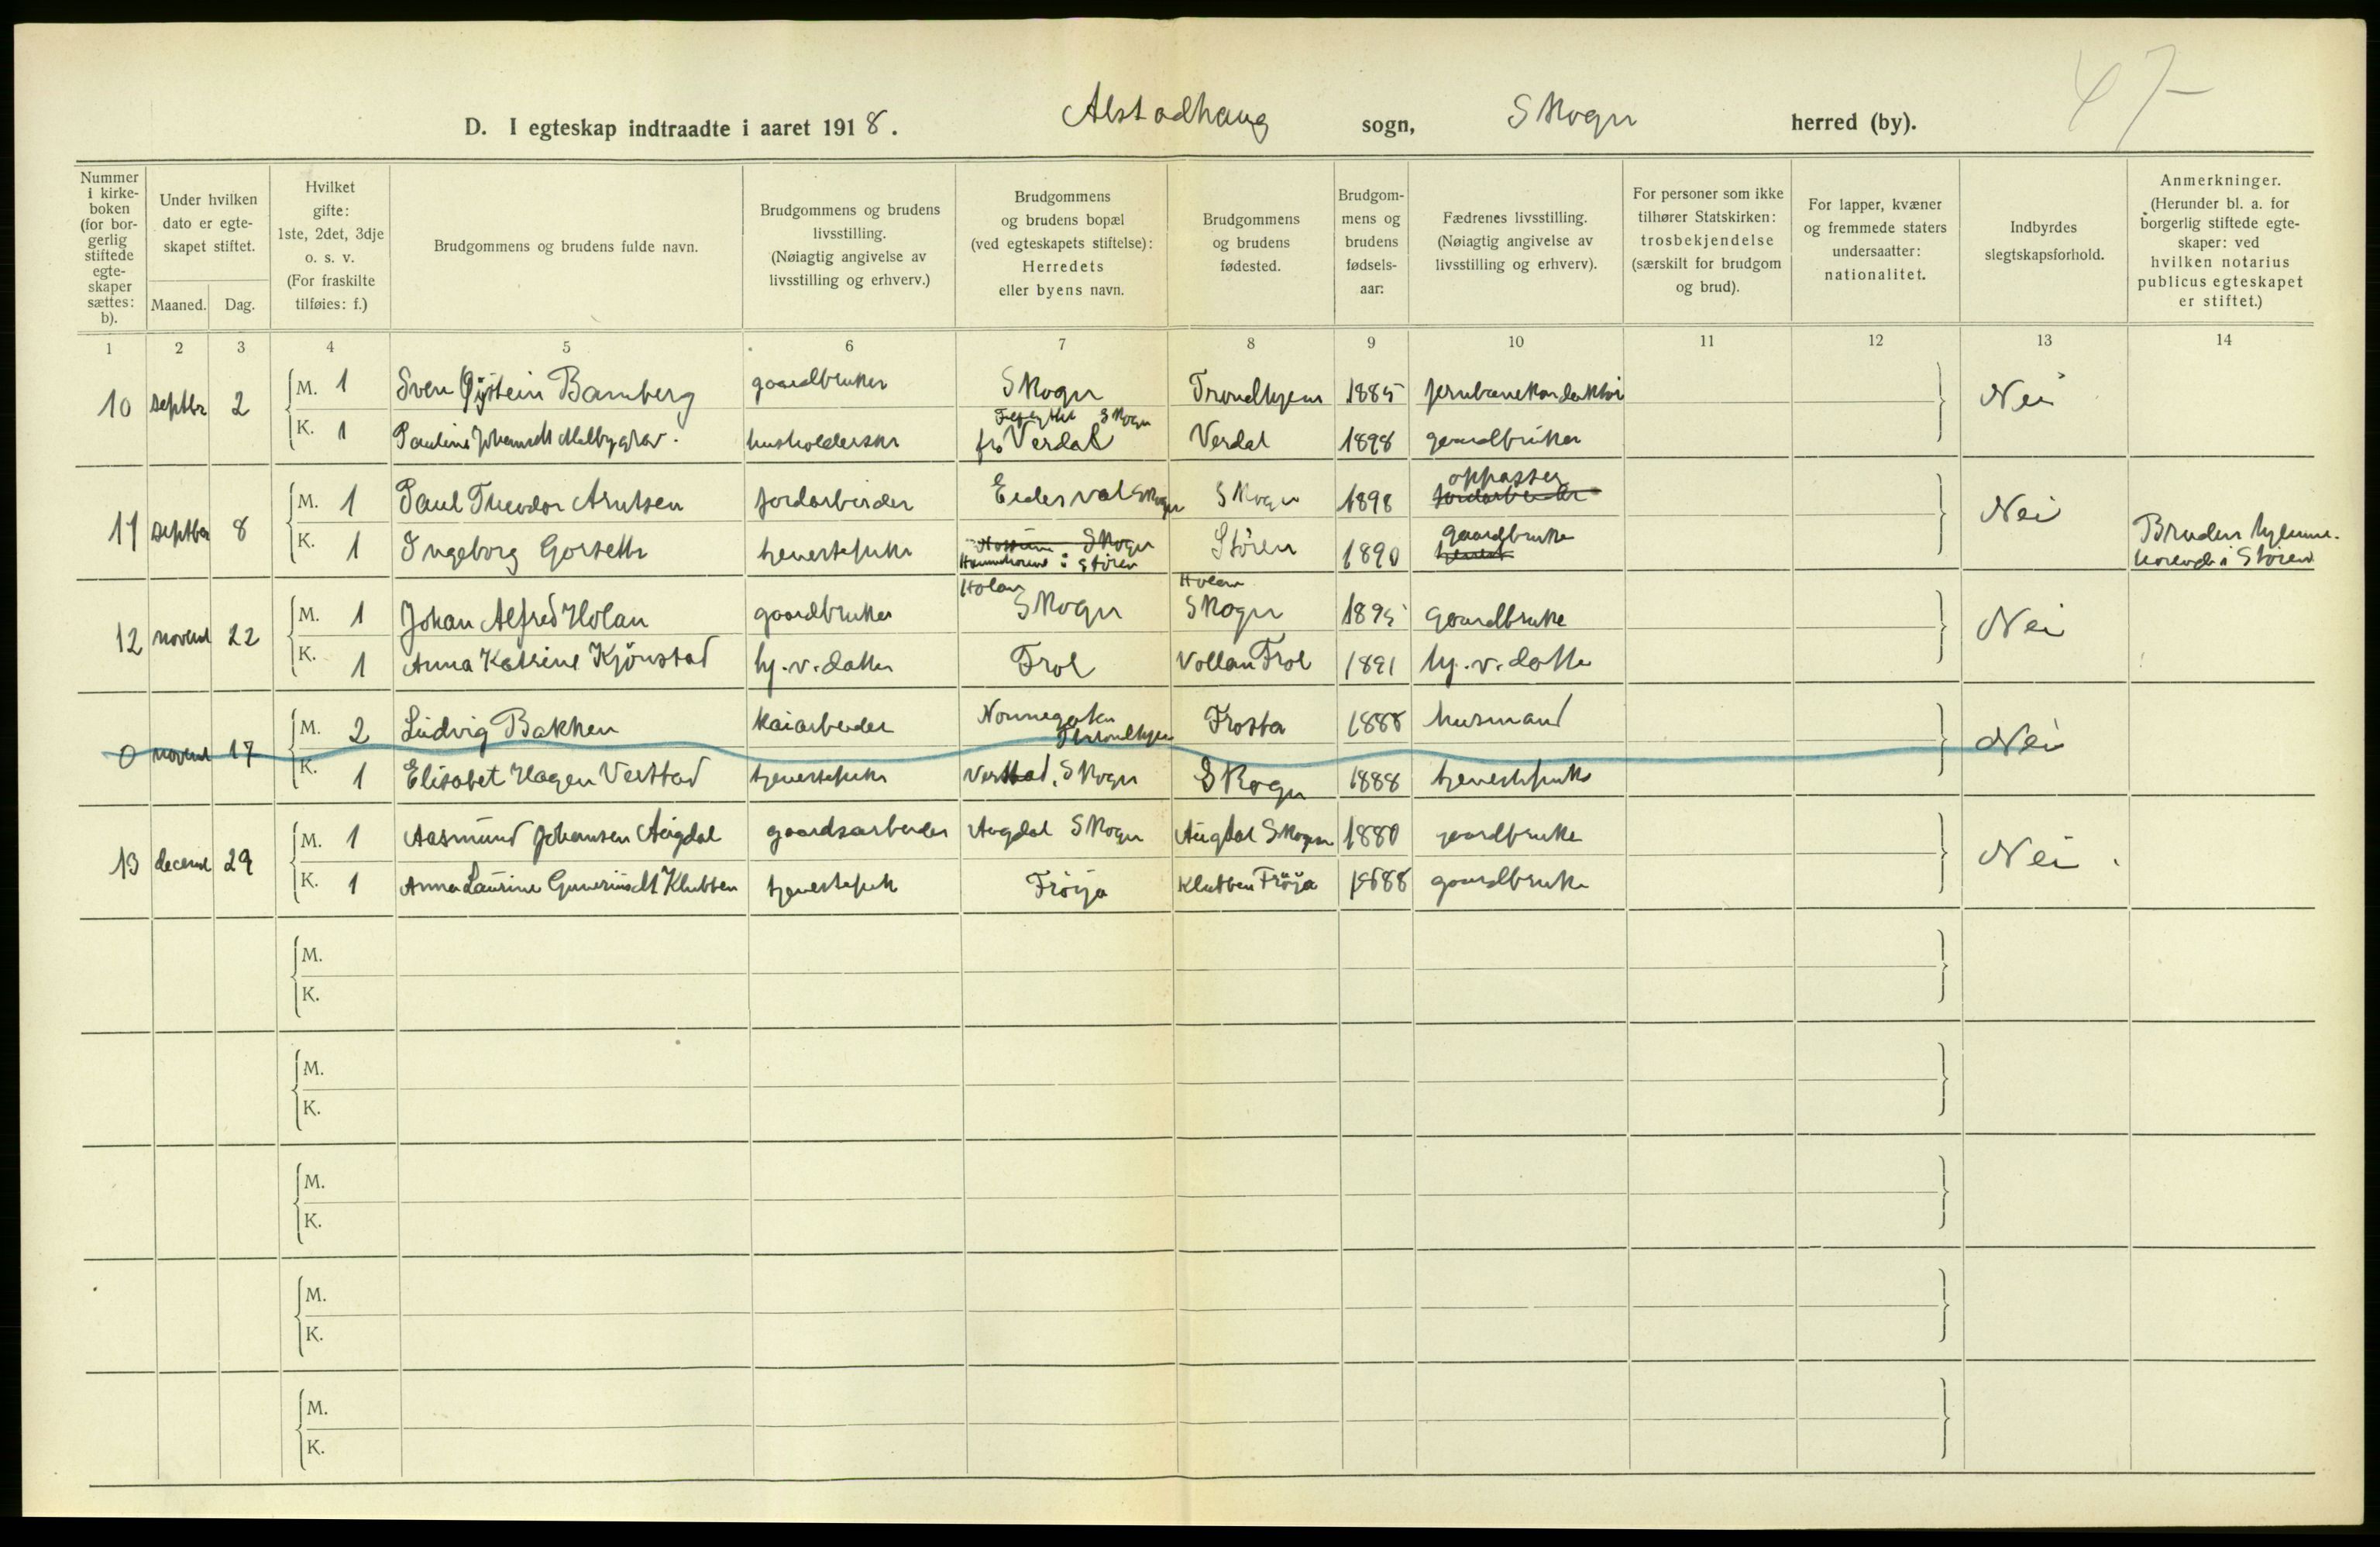 47
D. I egteskap indtraadte i aaret 1918. Alstadhaug sogn, Skogn herred (by).
Nummer i kirke-boken (for bor-gerlig stiftede egte-skaper sættes: b). | Under hvilken dato er egte-skapet stiftet. Maaned. Dag. | Hvilket gifte: 1ste, 2det, 3dje o. s. v. (For fraskilte tilføies: f.) | Brudgommens og brudens fulde navn. | Brudgommens og brudens livsstilling. (Nøiagtig angivelse av livsstilling og erhverv.) | Brudgommens og brudens bopæl (ved egteskapets stiftelse): Herredets eller byens navn. | Brudgommens og brudens fødested. | Brudgom-mens og brudens fødsels-aar: | Fædrenes livsstilling. (Nøiagtig angivelse av livsstilling og erhverv). | For personer som ikke tilhører Statskirken: trosbekjendelse (særskilt for brudgom og brud). | For lapper, kvæner og fremmede staters undersaatter: nationalitet. | Indbyrdes slegtskapsforhold. | Anmerkninger. (Herunder bl. a. for borgerlig stiftede egte-skaper: ved hvilken notarius publicus egteskapet er stiftet.)
1 2 3 4 5 6 7 8 9 10 11 12 13 14
10 septbr 2 M. 1 Sven Øystein Bamberg gaardbruker Skogn Trondhjem 1885 jernbanekonduktør Nei
K. 1 Pauline Johansdt Melbygrav. husholderske Skogn fra Verdal Verdal 1898 gaardbruker
11 septbr 8 M. 1 Paul Theodor Arntsen jordarbeider Eidesvol Skogn Skogn 1898 oppasser jordarbeider Nei
K. 1 Ingeborg Gorseth tjenestepike Skogn i Støren Støren 1890 gaardbruker tjenest Bruden hjemme-hørende i Støren
12 novemb 22 M. 1 Johan Alfred Holan gaardbruker Holan Skogn Holan Skogn 1895 gaardbruker Nei
K. 1 Anna Katrine Kjønstad hj.v.datter Frol Vollan Frol 1891 hj.v.datte
0 novemb 17 M. 2 Ludvig Bakken kaiarbeider Nonnegaten Throndhjem Frosta 1888 husmand Nei
K. 1 Elisabet Hagen Verstad tjenestepike Verstad, Skogn Skogn 1888 tjenestepike
13 decemb 29 M. 1 Aasmund Johansen Augdal gaardsarbeider Augdal Skogn Augdal Skogn 1880 gaardbruke Nei.
K. 1 Anna Laurine Guneriusdt Klubben tjenestepik Frøya Klubben Frøya 1888 gaardbruke
M.
K.
M.
K.
M.
K.
M.
K.
M.
K.